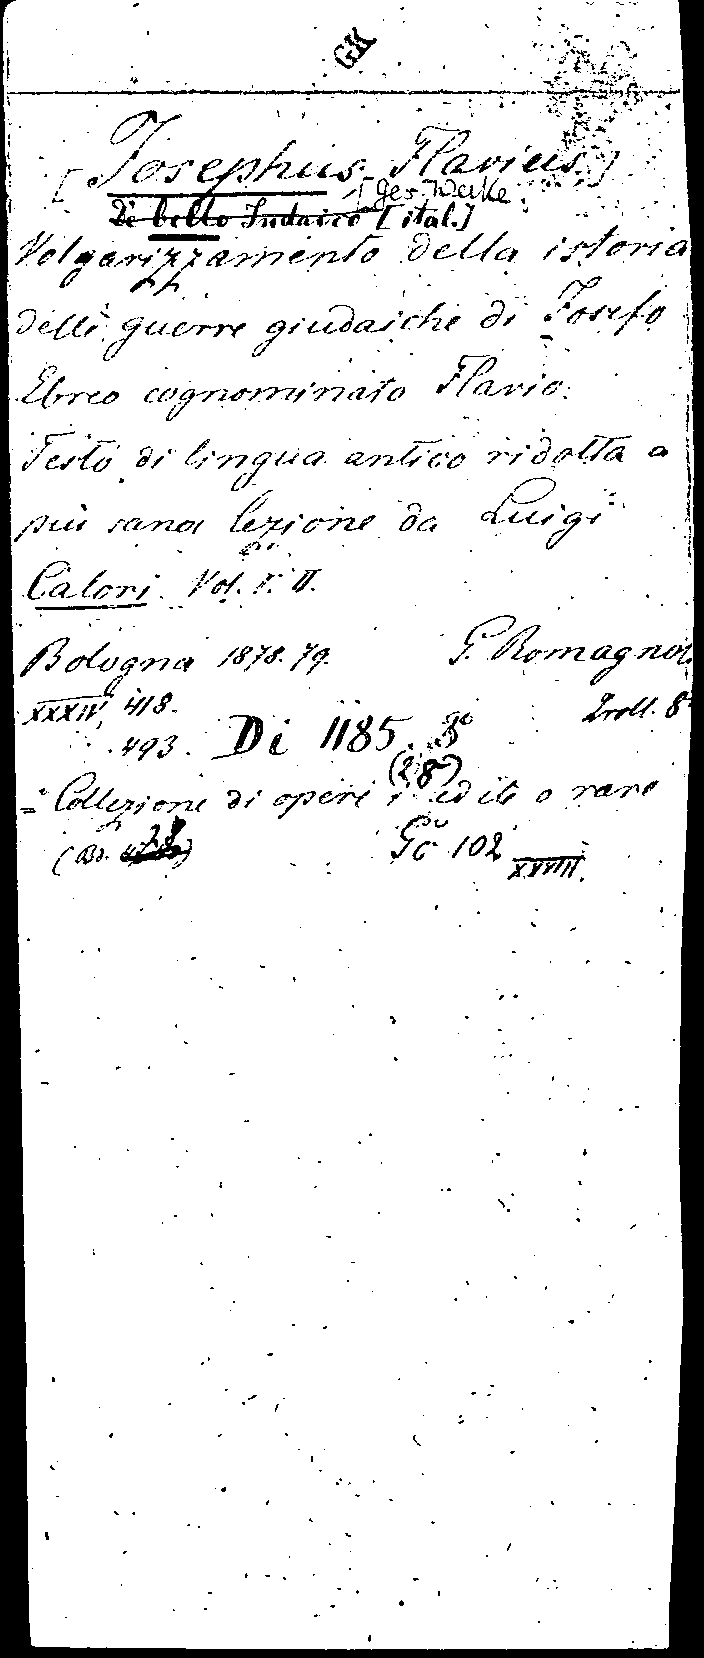 GK
[Josephus, Flavius.]
[Ges. Werke.
De bello Judaico [ital.]
Volgarizzamento della istoria
delle guerre giudaiche di Josefo
Ebreo cognominato Flavio.
Testo di lingua antico ridotta a
più sana lezione da Luigi
Calori. Vol. I. II.
Bologna 1878. 79. G. Romagnoli
XXXIV, 418. 2 voll. 8°
493. Di 1185 8°
(28)
= Collezione di opere inedite o rare
(Bd. 28) Gc 102 XXVIII.